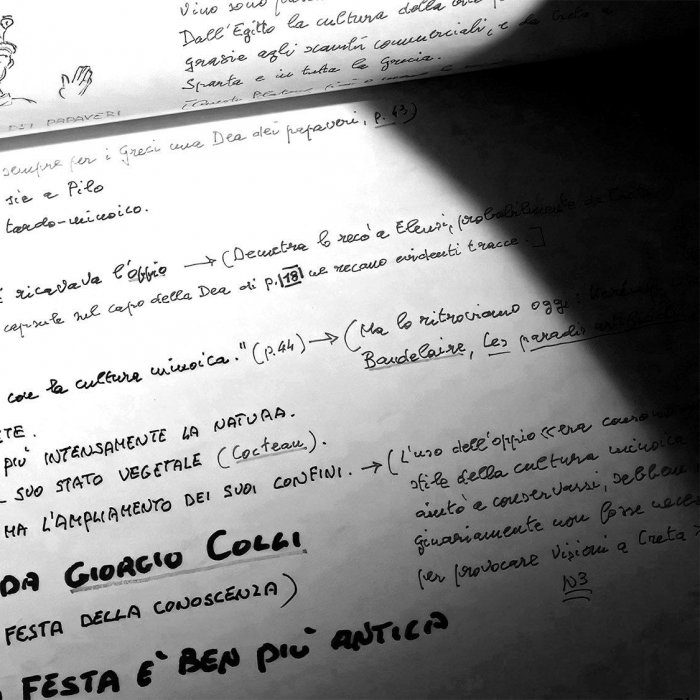 Vino sono
Dall'Egitto la cultura della
grazie agli scambi commerciali, e da Creta a
Sparta e in tutta la Grecia.
DEI PAPAVERI
sempre per i Greci una Dea dei papaveri, p. 43)
sie a Pilo
tardo-minoico.
ricavava l'oppio → (Demetra lo recò a Eleusi, probabilmente da Creta
capsule sul capo della Dea di p. 18 ne recano evidenti tracce.]
con la cultura minoica." (p.44) → (Ma lo ritroviamo oggi:
Baudelaire, Les paradis artificiels
ETE.
PIÙ INTENSAMENTE LA NATURA.
SUO STATO VEGETALE (Cocteau).
MA L'AMPLIAMENTO DEI SUOI CONFINI. → (L'uso dell'oppio «era
stile della cultura minoica
aiutò a conservarsi, sebbene
ginariamente non fosse
per provocare visioni a Creta
N3
DA GIORGIO COLLI
FESTA DELLA CONOSCENZA)
FESTA E' BEN PIÙ ANTICA